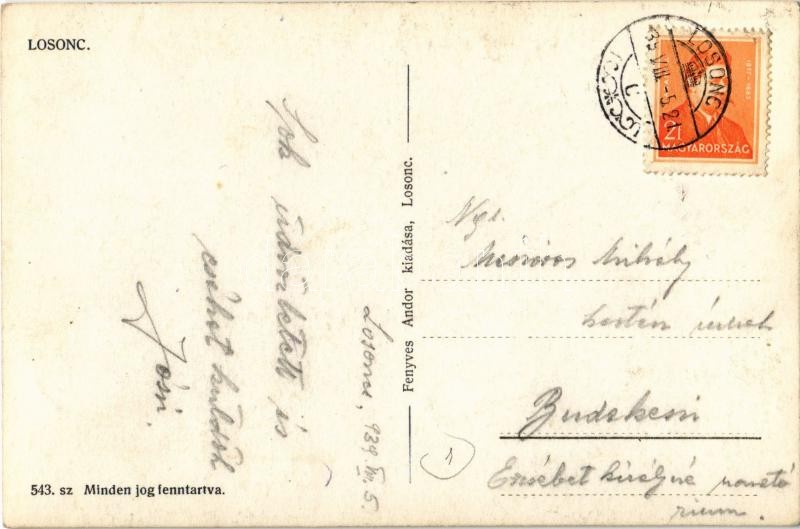 LOSONC.
LOSONC
39 VIII - 5. 21
21
MAGYARORSZÁG
Sok üdvözletet is
csókot küldök
Józsi.
Losonc, 939. VIII. 5.
Fenyves Andor kiadása, Losonc.
Ngs.
Mészáros Mihály
úrnak
Budakeszi
Erzsébet királyné szanató
rium.
1
543. sz Minden jog fenntartva.